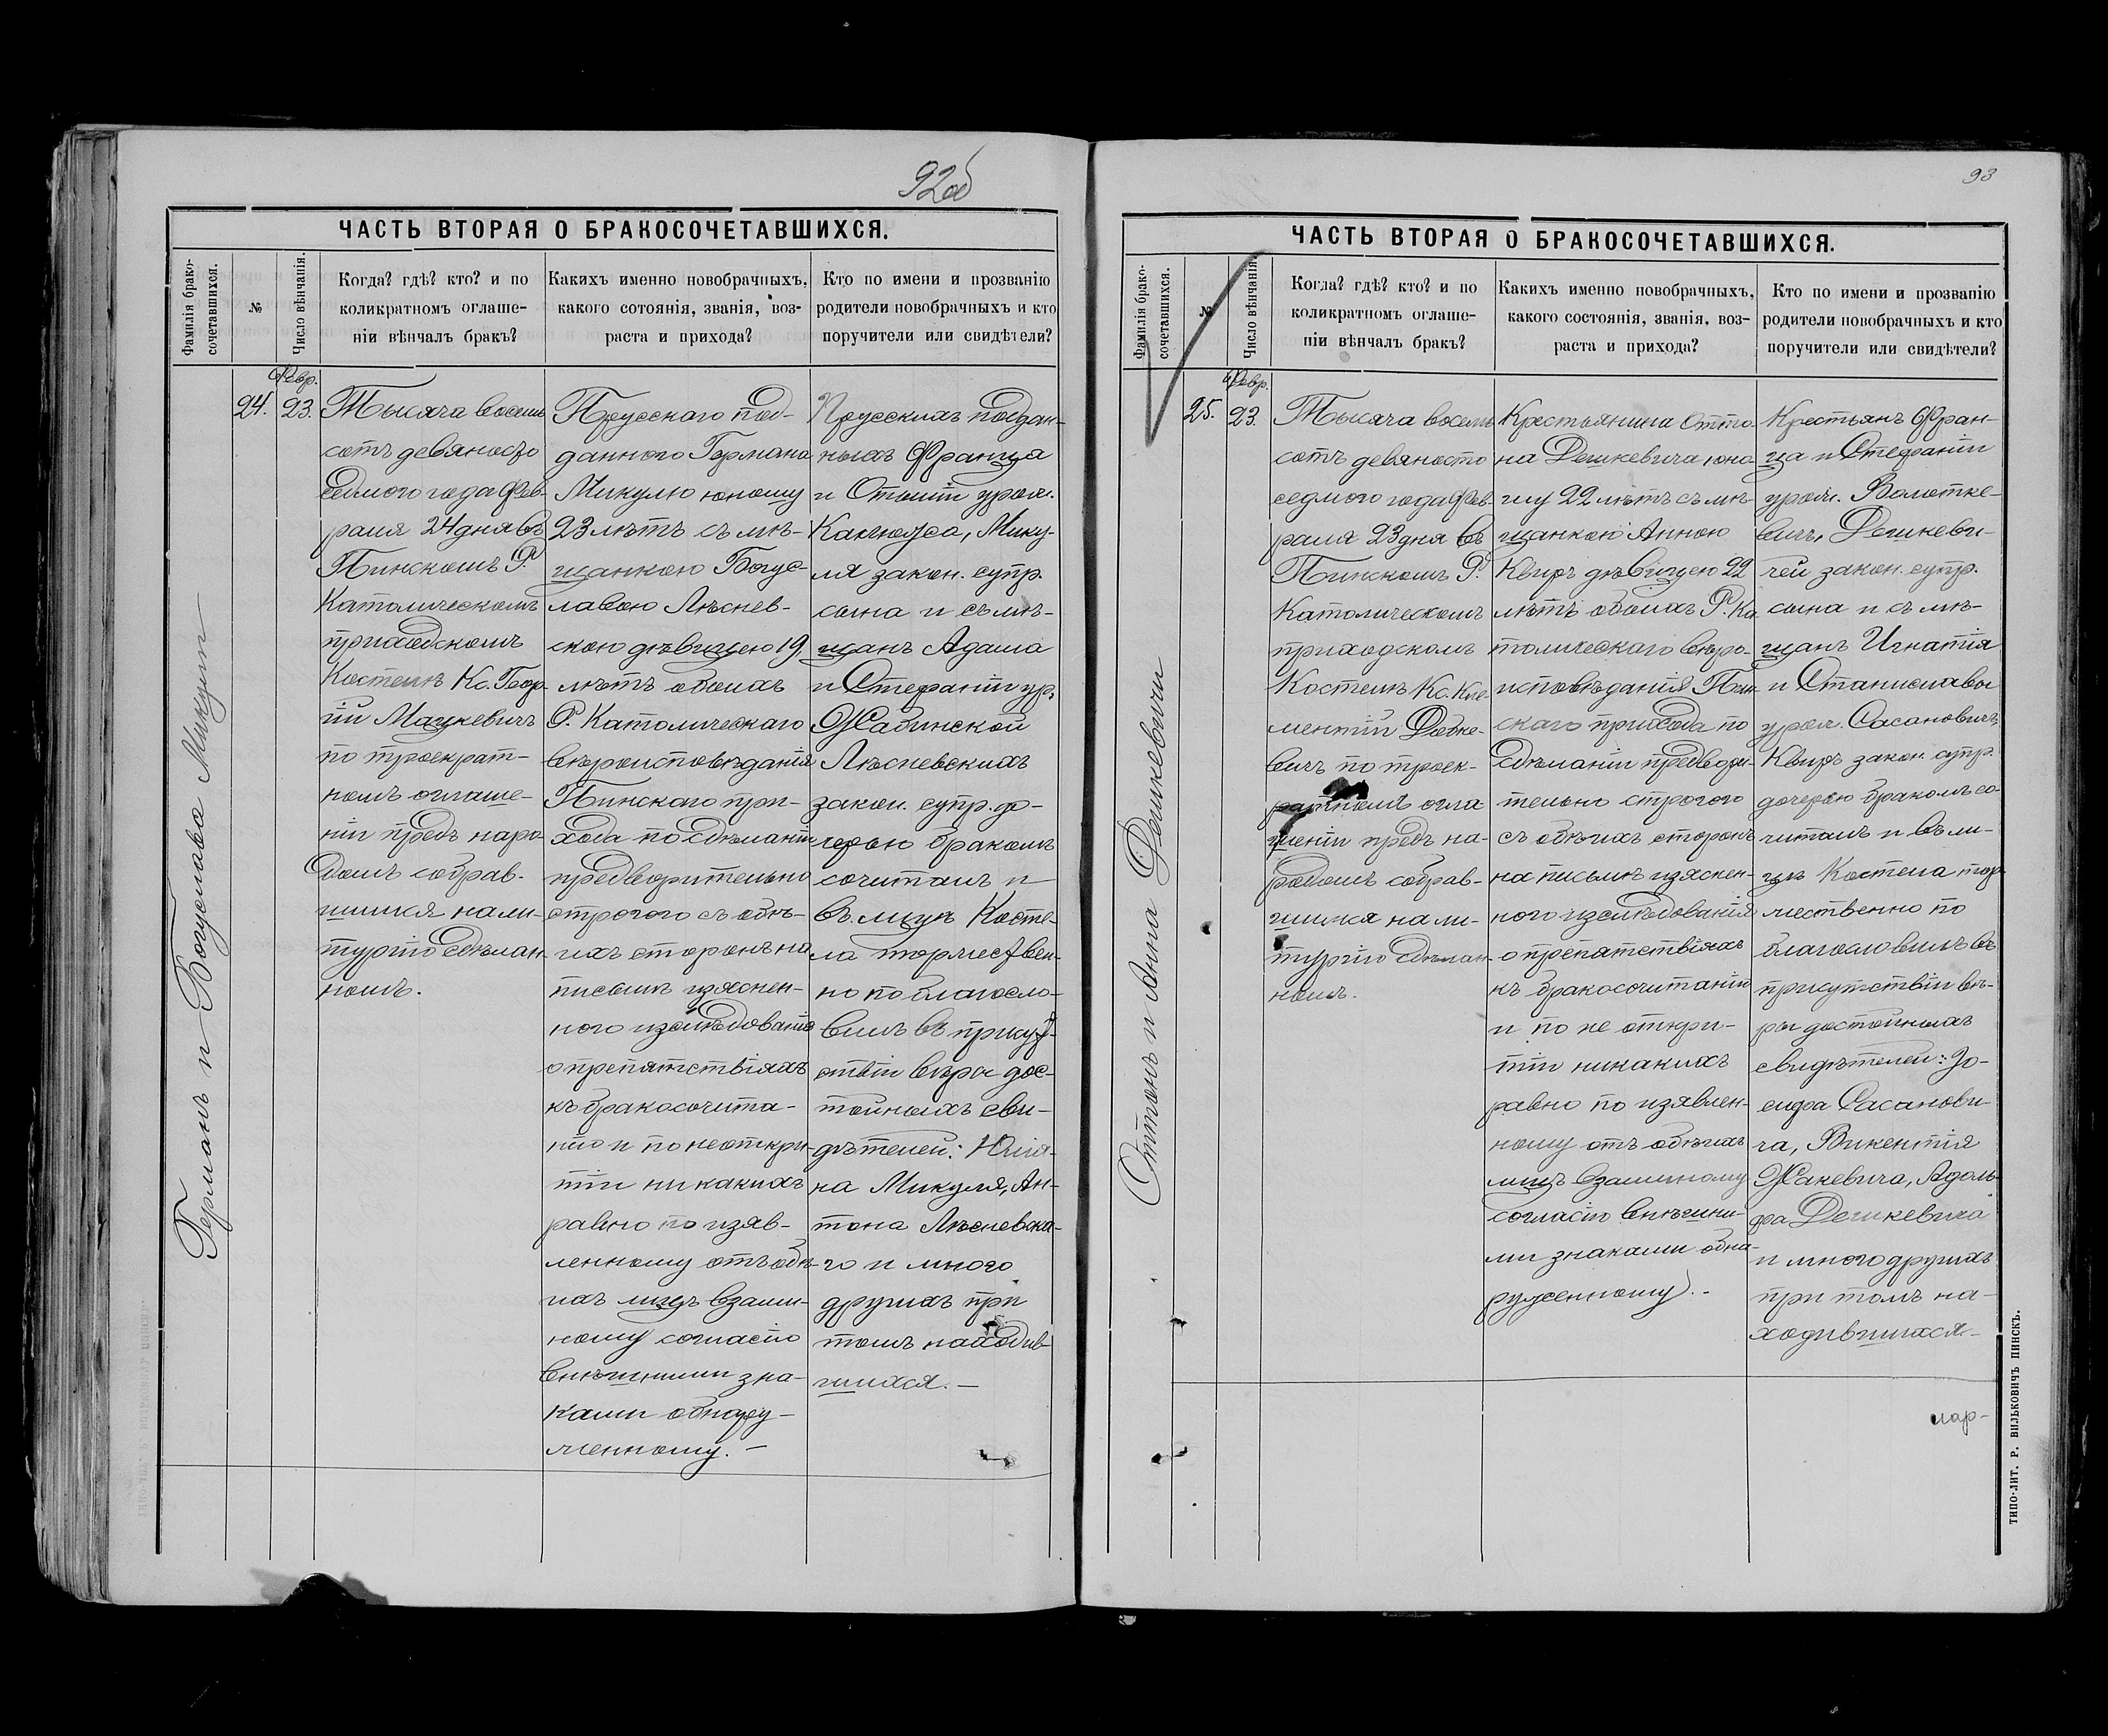 92об
ЧАСТЬ ВТОРАЯ О БРАКОСОЧЕТАВШИХСЯ.
Фамилія брако-
сочетавшихся.
№
Число вѣнчанія.
Когда? гдѣ? кто? и по
коликратномъ оглаше-
ніи вѣнчалъ бракъ?
Какихъ именно новобрачныхъ,
какого сотоянія, званія, воз-
раста и прихода?
Кто по имени и прозванію
родители новобрачныхъ и кто
поручители или свидѣтели?
Германъ и Богуслава Микули
24.
Февр.
23.
Тысяча восемь
сотъ девяносто
седмого года Фев-
раля 24 дня въ
Пинскомъ Р.
Католическомъ
приходскомъ
Костелѣ Кс. Геор-
гій Мацкевичъ
по троекрат-
номъ оглаше-
ніи предъ наро-
домъ собрав-
шимся на ли-
тургію сдѣлан-
номъ.
Прусскаго под-
данного Германа
Микулю юношу
23 лѣтъ съ мѣ-
щанкою Богус-
лавою Лѣснев-
скою дѣвицею 19
лѣтъ обоихъ
Р. Католическаго
вѣроисповѣданія
Пинскаго при-
хода по сдѣланіи
предварительно
строгого съ обѣ-
ихъ сторонъ на
письмѣ изяснен-
ного изслѣдованія
о препятствіяхъ
къ бракосочита-
нію и по неоткри-
тіи никакихъ
равно по изяв-
ленному отъ обѣ-
ихъ лицъ взаим-
ному согласію
внѣшними зна-
ками обнару-
женному.-
Прусскихъ поддан-
ныхъ Франца
и Отыліи урож.
Канчоуса, Мику-
ля закон. супр.
сына и съ мѣ-
щанъ Адама
и Стефаніи ур.
Жабинской
Лѣсневскихъ
закон. супр. до-
черью бракомъ
сочиталъ и
въ лицѣ Косте-
ла торжествен-
но поблагосло-
вилъ въ присут-
ствіи вѣры дос-
тойныхъ сви-
дѣтелей: Юлія-
на Микуля, Ан-
тона Лѣсневска-
го и много
другихъ при
томъ находив-
шихся.-
93
ЧАСТЬ ВТОРАЯ О БРАКОСОЧЕТАВШИХСЯ.
Фамилія брако-
сочетавшихся.
№
Число вѣнчанія.
Когда? гдѣ? кто? и по
коликратномъ оглаше-
ніи вѣнчалъ бракъ?
Какихъ именно новобрачныхъ,
какого состоянія, званія, воз-
раста и прихода?
Кто по имени и прозванію
родители новобрачныхъ и кто
поручители или свидѣтели?
Оттонъ и Анна Дешкевичи
25.
Февр.
23.
Тысяча восемь
сотъ девяносто
седмого года Фев-
раля 23 дня въ
Пинскомъ Р.
Католическомъ
приходскомъ
Костелѣ Кс. Кле-
ментій Довке-
вичъ по троек-
ратномъ огла-
шеніи предъ на-
родомъ собрав-
шимся на ли-
тургію сдѣлан-
номъ.
Крестьянина Отто-
на Дешкевича юно-
шу 22 лѣтъ съ мѣ-
щанкой Анною
Квиръ дѣвицею 22
лѣтъ обоихъ Р. Ка-
толическаго вѣро-
исповѣданія Пин-
скаго прихода по
сдѣланіи предвори-
тельно строгого
съ обѣихъ сторонъ
на письмѣ изяснен-
ного изслѣдованія
о препятствіяхъ
къ бракосочитаніи
и по не откри-
тіи никакихъ
равно по изявлен-
ному отъ обѣихъ
лицъ взаимному
согласію внѣшни-
ми знаками обна-
руженному.-
Крестьянъ Фран-
ца и Стефаніи
урож. Волотке-
вичъ, Дешкеви-
чей закон. супр.
сына и съ мѣ-
щанъ Игнатія
и Станиславы
урож. Сасановичъ
Квиръ закон. супр.
дочерью бракомъ со-
читалъ и въ ли-
цѣ Костела тор-
жественно по
благословилъ въ
присутствіи вѣ-
ры достойныхъ
свидѣтелей: Іо-
сифа Сасанови-
ча, Викентія
Жакевича, Адоль-
фа Дешкевича
и много другихъ
при томъ на-
ходившихся.-
мар-
ТИПО-ЛИТ. Р. ВИЛЬКОВИЧЪ ПИНСКЪ.